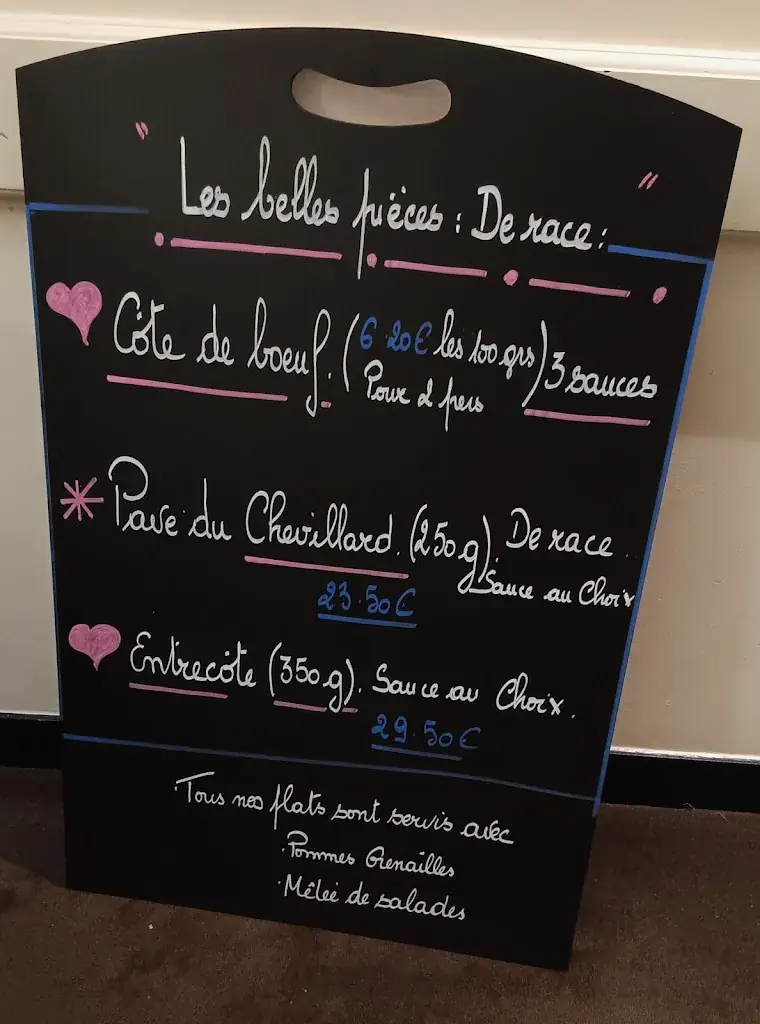 " Les belles pièces : De race : "
Côte de boeuf. (6.20€ les 100 grs) 3 sauces
Pour 2 pers
Pavé du Chevillard. (250g). De race.
Sauce au Choix
23.50€
Entrecôte (350g). Sauce au Choix.
29.50€
Tous nos plats sont servis avec
. Pommes Grenailles
. Mêlée de salades